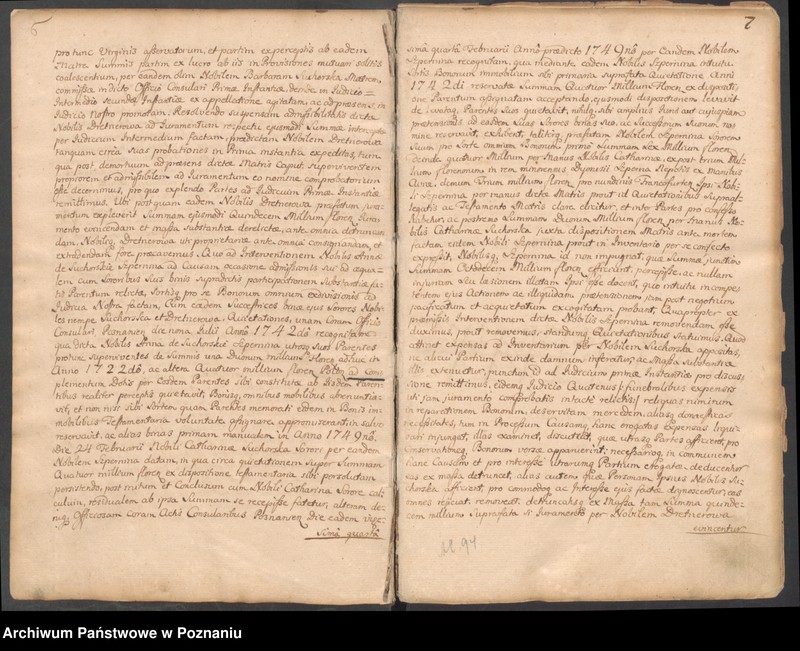 6
pro tunc Virginis asservatorum, et partim ex perceptis ab eadem
Matre Summis partim ex lucro ab iis in Provisiones
coalescentium, per eandem olim Nobilem Barbaram Suchorska Matrem,
in dicto Officio Consulari Primæ Instantiæ, deinde in Judicio
Intermedio secundæ Instantiæ ex appellatione agitatam, ac ad præsens in
Judicio Nostro promotam. Resolvendo suspensam admissibilitatis dictæ
Nobilis Dretnerowa ad Juramentum respectu ejusmodi Summæ
per Judicium Intermedium factam prædictam Nobilem Dretnerowa
tanquam circa suas probationes in Prima Instantia expeditas, tum
qua post demortuam ad præsens dictæ Matris Caput Superviventem
propriorem et admissibilem ad Juramentum eo nomine comprobatorium
esse decernimus, pro quo explendo Partes ad Judicium Primæ Instantiæ
remittimus. Ubi postquam eadem Nobilis Dretnerowa præfatum
expleverit Summam ejusmodi Quindecem Millium floren. Jura-
mento evincendam et massa Substantiæ derelictæ, ante omnia detruncan-
dam, Nobili Dretnerowa ut proprietariæ ante omnia consignandam, et
extradendam fore præcavemus. Quo ad Interventionem Nobilis Annæ
de Suchorskie Sepernina ad Causam occasione admissionis sui ad æqua-
lem cum Sororibus Suis binis supradictis participationem Substantiæ
Parentum relictæ, Sortisq pro se Bonorum omnium exdivisionis ad
Judicia Nostra factam, Cum eædem Succestrices binæ ejus Sorores Nobi-
les nempe Suchorska et Dretnerowa, Quietationes, unam Coram Officio
Consulari Posnanien die nona Julii Anno 1742do recognitam
qua dicta Nobilis Anna de Suchorskie Sepernina utrosq Suos Parentes
protunc Superviventes de Summis una Duorum millium floren. adhuc in
Anno 1722do, ac altera Quatuor millium floren Polon ad com
plementum Dotis per Eosdem Parentes Sibi constitutæ ab Iisdem Paren-
tibus realiter perceptis quietavit, Bonisq omnibus mobilibus abrenuntia-
vit, et non nisi Sibi Sortem quam Parentes memorati eidem in Bonis im-
mobilibus Testamentaria voluntate assignare appromiserant in salvo
reservavit, ac alias binas primam manualem in Anno 1749no
Die 24 Februarii Nobili Catharinæ Suchorska Sorori per eandem
Nobilem Sepernina datam, in qua circa quietationem Super Summam
Quatuor millium floren ex dispositione testamentaria sibi persolutam
persistendo, post initum et Conclusum cum Nobili Catharina Sorore cal-
culum, residualem ab ipsa Summam se recepisse fatetur, alteram de-
niq Officiosam Coram Actis Consularibus Posnanien die eadem vige-
sima quarta
7
sima quarta Februarii Anno prædicto 1749no per Eandem Nobilem
Sepernina recognitam, qua mediante eadem Nobilis Sepernina intuitu
Sortis Bonorum immobilium sibi primaria Suprafata Quietatione Anni
1742do reservatæ Summam Quatuor Millium floren ex dispositi-
one Parentum assignatam acceptando, ejusmodi dispositionem
de Parentes Suos quietavit, nihilq sibi amplius Juris aut cujuspiam
prætensionis ad easdem alias Sorores binas suo, ac Successorum Suorum no-
mine reservavit, exhibent, taliterq præfatam Nobilem Sepernina Sororem
Suam pro Sorte omnium Bonorum primo Summam Sex Millium floren
deinde quatuor Millium per Manus Nobilis Catharinæ, ex post trium Mil-
lium florenorum in rem minorennis Hyacinthi Sepernæ Nepotis ex manibus
Aviæ, demum trium millium floren pro nundinis Francofurten Ipsi Nobi-
li Sepernina per manus dictæ Matris prout id Quietationibus Supraal-
legatis ac Testamento Matris clare elicitur, et inter Partes pro confesso
habetur, ac postremo Summam Duorum Millium floren per manus No-
bilis Catharinæ Suchorska juxta dispositionem Matris ante mortem
factam eidem Nobili Sepernina prout in Inventorio per se confecto
expressit, Nobilisq Sepernina id non impugnat, quæ Summæ junctim
Summam Octodecem Millium floren efficiunt, percepisse, ac nullam
injuriam seu læsionem illatam Ipsi esse docent, quo intuitu incompe-
tentem ejus Actionem ac illiquidam prætensionem jam post negotium
pacificatum et acquietatum excogitatam probant, Quapropter ex
præmissis Interventionem dictæ Nobilis Sepernina removendam esse
duximus, prout removemus, Quietationibus Statuimus. Quod
attinet expensas ad Inventarium per Nobilem Suchorska appositas,
ne alicui Partium exinde damnum inferatur, ac Massa substantiæ
illis extenuetur, punctum id ad Judicium primæ Instantiæ pro discus-
sione remittimus, eidemq Judicio Quatenus funebralibus expensis
uti jam juramento comprobatis intacte relictis, reliquas nimirum
in reparationem Bonorum, deservitam mercedem, aliasq domesticas
necessitates, tum in Processum Causamq hanc erogatas Expensas liqui-
dari injungat, illas examinet, discutiat, quæ utrasq Partes afficiunt, pro
conservationeq Bonorum versæ apparuerint, necessarioq in communem
hanc Causam et pro interesse Utrarumq Partium erogatæ, deducentur
eas ex massa detruncet, alias autem quæ Personam Ipsius Nobilis Su-
chorska afficiunt, pro commodoq ac Interesse ejus factæ dignoscentur, eas
omnes resecat, removeat, detruncatisq ex Massa tam Summa quinde-
cem millium suprafata si Juramento per Nobilem Dretnerowa
evincentur
M. 94
Archiwum Państwowe w Poznaniu